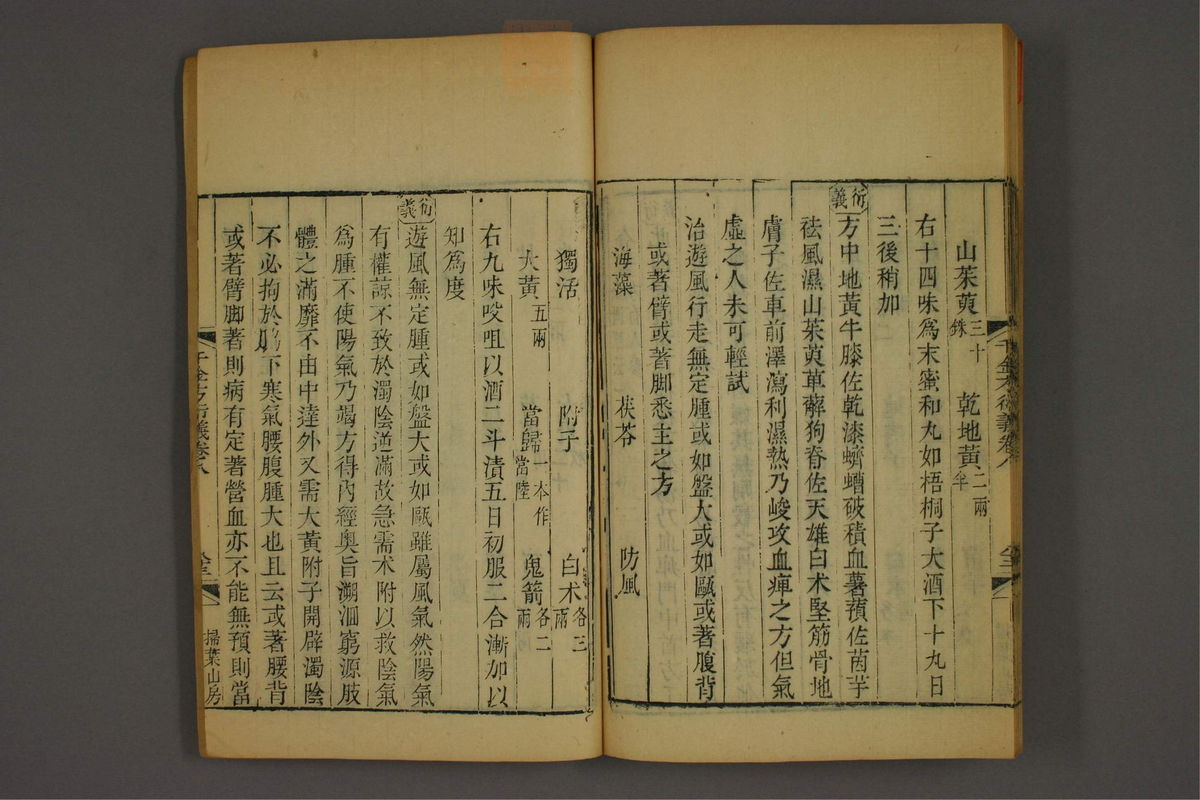 山茱萸三十銖 乾地黃二兩半
右十四味爲末蜜和丸如梧桐子大酒下十丸日
三後稍加
衍義 方中地黃牛膝佐乾漆蠐螬破積血薯蕷佐茵芋
祛風濕山茱萸萆薢狗脊佐天雄白术堅筋骨地
膚子佐車前澤瀉利濕熱乃峻攻血痺之方但氣
虛之人未可輕試
治遊風行走無定腫或如盤大或如甌或著腹背
或著臂或著脚悉主之方
海藻 茯苓 防風
獨活 附子 白术各三兩
大黃五兩 當歸一本作當陸 鬼箭各二兩
右九味㕮咀以酒二斗漬五日初服二合漸加以
知爲度
衍義 遊風無定腫或如盤大或如甌雖屬風氣然陽氣
有權諒不致於濁陰逆滿故急需术附以救陰氣
爲腫不使陽氣乃竭方得內經奧旨溯洄窮源肢
體之滿靡不由中達外又需大黃附子開辟濁陰
不必拘於脇下寒氣腰腹腫大也且云或著腰背
或著臂脚著則病有定著營血亦不能無預則當
千金方衍義卷八
掃葉山房